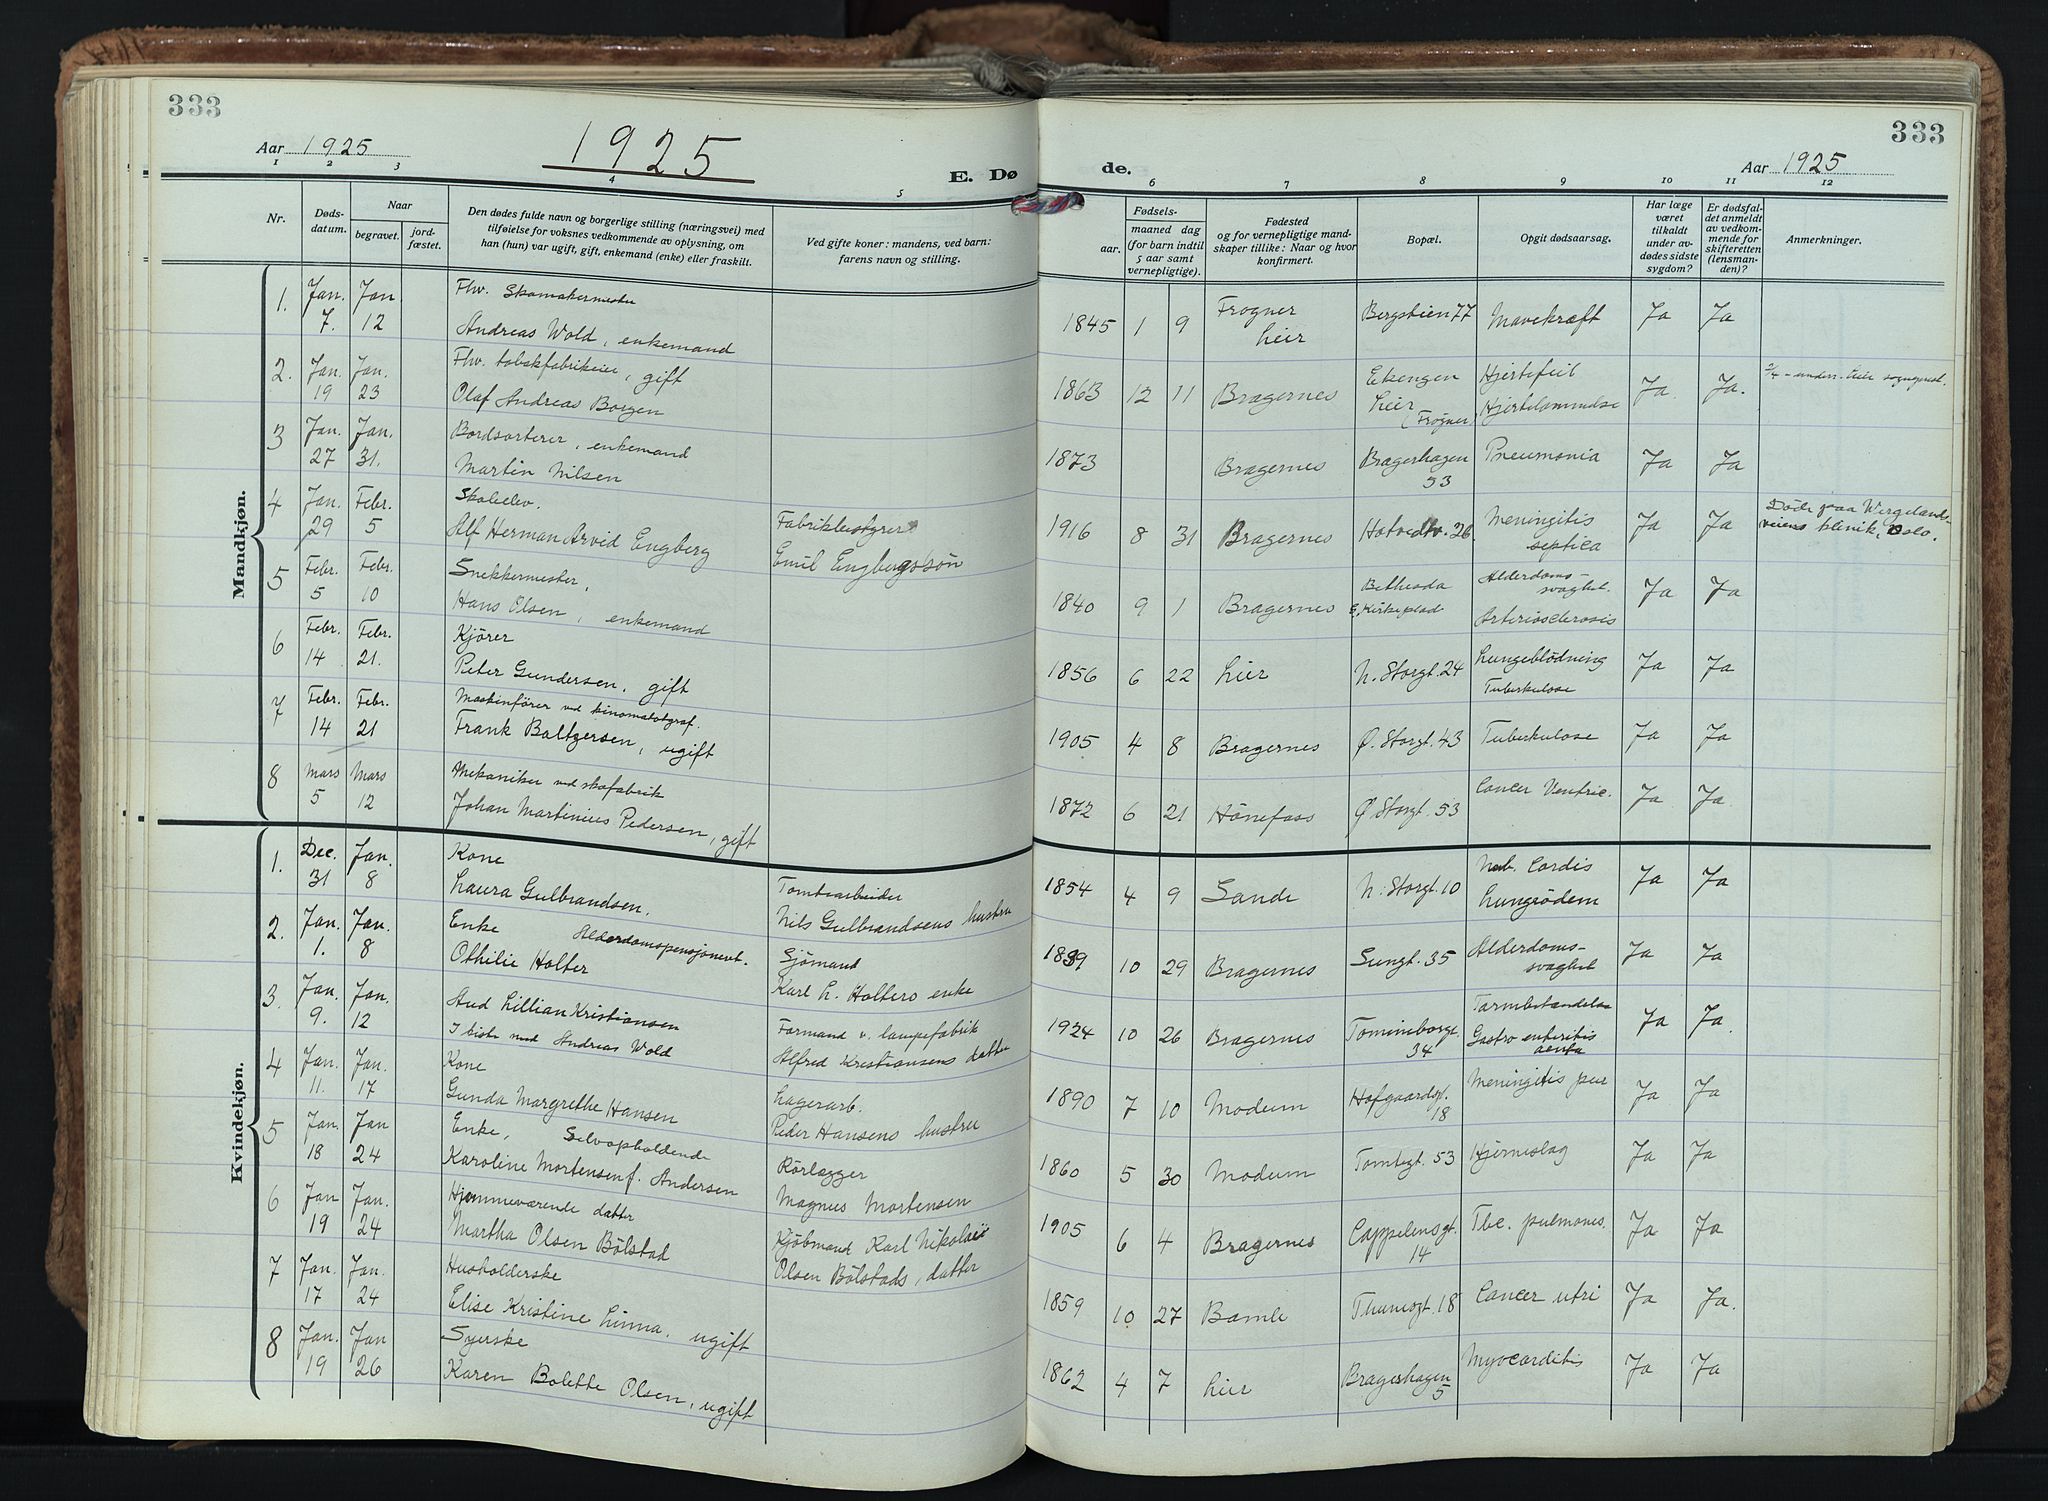 333
333
Aar 1925
1925
E. Dø
de.
Aar 1925
1 2 3 4 5 6 7 8 9 10 11 12
Nr.
Døds-
datum.
Naar
begravet.
jord-
fæstet.
Den dødes fulde navn og borgerlige stilling (næringsvei) med
tilføielse for voksnes vedkommende av oplysning, om
han (hun) var ugift, gift, enkemand (enke) eller fraskilt.
Ved gifte koner: mandens, ved barn:
farens navn og stilling.
Fødsels-
aar.
maaned dag
(for barn indtil
5 aar samt
vernepligtige).
Fødested
og for vernepligtige mand-
skaper tillike: Naar og hvor
konfirmert.
Bopæl.
Opgit dødsaarsag.
Har læge
været
tilkaldt
under av-
dødes sidste
sygdom?
Er dødsfal-
det anmeldt
av vedkom-
mende for
skifteretten
(lensman-
den)?
Anmerkninger.
Mandkjøn.
1. Jan. Jan Fhv. Skomakermester
7. 12 Andreas Wold, enkemand
1845 1 9 Frogner Bergstien 77 Mavekræft Ja Ja
Lier
2. Jan. Jan. Fhv. tobakfabrikeier, gift
19 23 Olaf Andreas Borgen
1863 12 11 Bragernes Eikengen Hjertefeil Ja Ja.
Lier Hjertelammelse
(Frogner)
3 Jan. Jan. Bordsorterer, enkemand
27 31. Martin Nilsen
1873 Bragernes Bragerhagen Pneumonia Ja Ja
53
4 Jan. Febr. Skoleelev.
29 5 Alf Herman Arvid Engberg Fabrikbestyrer
Emil Engbergssøn
1916 8 31 Bragernes Hotvedtv. 26 Meningitis Ja Ja Døde paa Wergelands-
septica veiens klinik, Oslo.
5 Febr. Febr. Snekkermester,
5 10 Hans Olsen, enkemand
1840 9 1 Bragernes Bethesda Alderdoms- Ja Ja
Kirkeplad svaghet.
Arteriosclerosis
6 Febr. Febr. Kjører
14 21. Peter Gundersen, gift
1856 6 22 Lier N. Storgt. 24 Lungeblødning Ja Ja
Tuberkulose
7 Febr. Febr. Maskinfører ved kinomatotgraf.
14 21 Frank Baltzersen, ugift
1905 4 8 Bragernes Ø. Storgt. 43 Tuberkulose Ja Ja
8 Mars Mars Mekaniker ved skofabrik
5 12 Johan Martinius Pedersen, gift
1872 6 21 Hønefoss Ø Storgt. 53 Cancer Ventric. Ja Ja.
Kvindekjøn.
1. Dec. Jan. Kone
31 8 Laura Gulbrandsen. Tomtearbeider
Nils Gulbrandsens hustru
1854 4 9 Sande N. Storgt. 10 Cordis Ja Ja
Lungeødem
2. Jan. Jan. Enke Alderdomspensjonert.
1. 8 Othilie Holter Sjømand
Karl L. Holters enke
1839 10 29 Bragernes Sungt. 35 Alderdoms- Ja Ja
svaghet
3. Jan. Jan. Aud Lillian Kristiansen
9. 12 I kiste med Andreas Wold Formand v. lampefabrik
Alfred Kristiansens datter
1924 10 26 Bragernes Tomineborgt. Tarmbetændelse Ja Ja.
34 Gastro enteritis
acuta
4 Jan. Jan. Kone
11. 17 Gunda Margrethe Hansen Lagerarb.
Peder Hansens hustru
1890 7 10 Modum Hofgaardsgt. Meningitis pur Ja Ja
18
5 Jan. Jan Enke, Selvopholdende
18 24 Karoline Mortensen f. Andersen Rørlægger
Magnus Mortensen
1860 5 30 Modum Tomtegt. 53 Hjerneslag Ja Ja
6 Jan Jan. Hjemmeværende datter
19 24 Martha Olsen Bølstad Kjøbmand Karl Nikolai
Olsen Bølstads, datter
1905 6 4 Bragernes Cappelensgt. Tbc. pulmones. Ja Ja
14
7 Jan. Jan. Husholderske
17 24 Elise Kristine Linna, ugift
1859 10 27 Bamle Thamsgt. 18 Cancer utri Ja Ja.
8 Jan. Jan Syerske
19 26 Karen Bolette Olsen, ugift
1862 4 7 Lier Bragerhagen Myocarditis Ja Ja
5